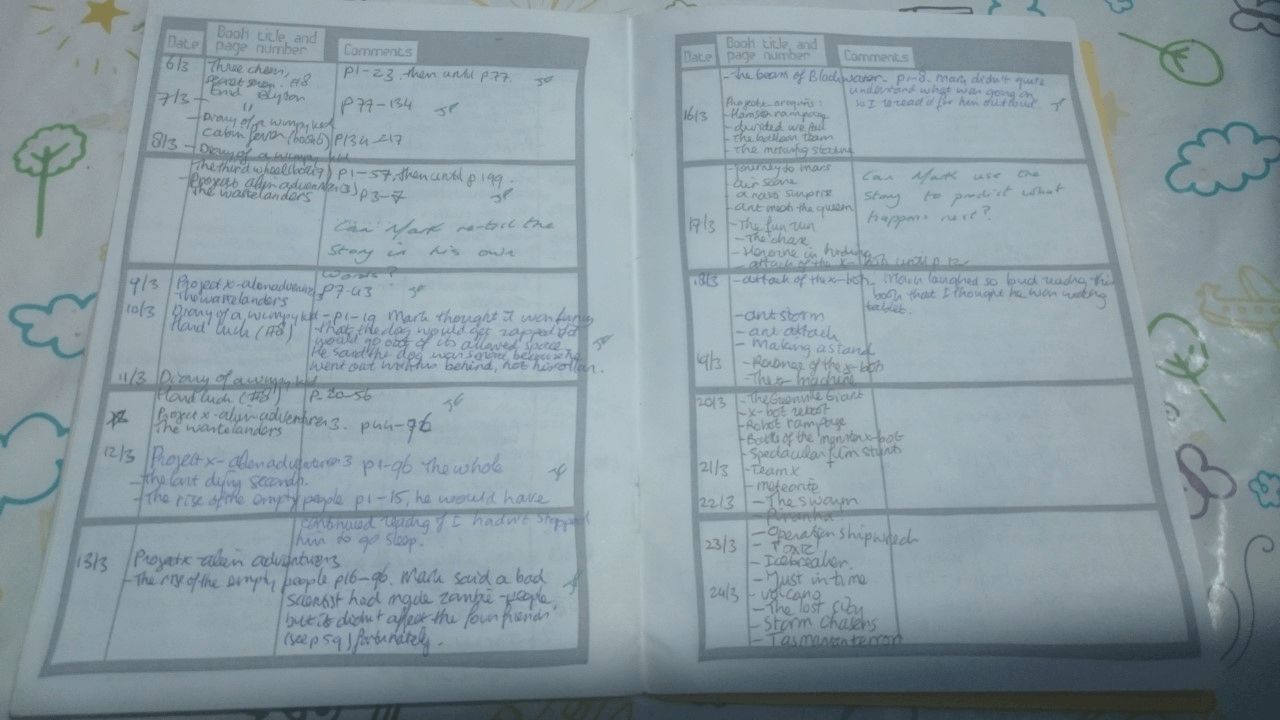 Date Book title, and page number Comments
6/3 Three cheers, p1-23, then until p77.
secret seven. #8
Enid Blyton
7/3 - " p77-134
- Diary of a wimpy kid
cabin fever (book6) p134-217
8/3 - Diary of a wimpy kid
The third wheel (book7) p1-57, then until p199.
- Project x alien adventures 3)
The wastelanders p3-7
Can Mark re-tell the
story in his own
words?
9/3 Project x-alien adventures p7-43
The wastelanders
10/3 Diary of a wimpy kid - p1-19 Mark thought it was funny
Hard luck (#8) that the dog would get zapped if it
would go out of its allowed space
He said the dog was smart because he
went out with his behind, not his collar.
11/3 Diary of a wimpy kid
Hard luck (#8) p20-56
Project x-alien adventures 3. p44-76
The wastelanders
12/3 Project x-alien adventures 3 p1-96 the whole
- The last dying seconds.
- The rise of the empty people p1-15, he would have
continued reading if I hadn't stopped
him to go sleep.
13/3 Project x alien adventures 3
- The rise of the empty people p16-96. Mark said a bad
scientist had made zombie-people,
but it didn't affect the four friends
(see p59) fortunately.
Date Book title, and page number Comments
- The beast of Blackwater. p1-8. Mark didn't quite
understand what was going on
so I re-read it for him out loud.
16/3 Project x origins:
- Hamster rampage
- divided we fall
- the bottom team
- The missing statue
- journey to mars Can Mark use the
- air scare story to predict what
- a nasty surprise happens next?
- ant meets the queen
17/3 - The fun run
- The chase
- Heroine in hiding
- attack of the x-bots until p12
18/3 - attack of the x-bots. Mark laughed so loud reading this
book that I thought he was watching
tablet.
- ant storm
- ant attack
- Making a stand
19/3 - Revenge of the x-bots
- The x machine
20/3 - The Grenville Giant
- x-bot reboot
- Robot rampage
- Battle of the monster x-bot
- Spectacular film stunts
21/3 - Team x
- meteorite
22/3 - The swarm
- Piranha
23/3 - Operation shipwreck
- Toxic
- Icebreaker
- Just in time
24/3 - volcano
- The lost city
- Storm chasers
- Tasmanian terror